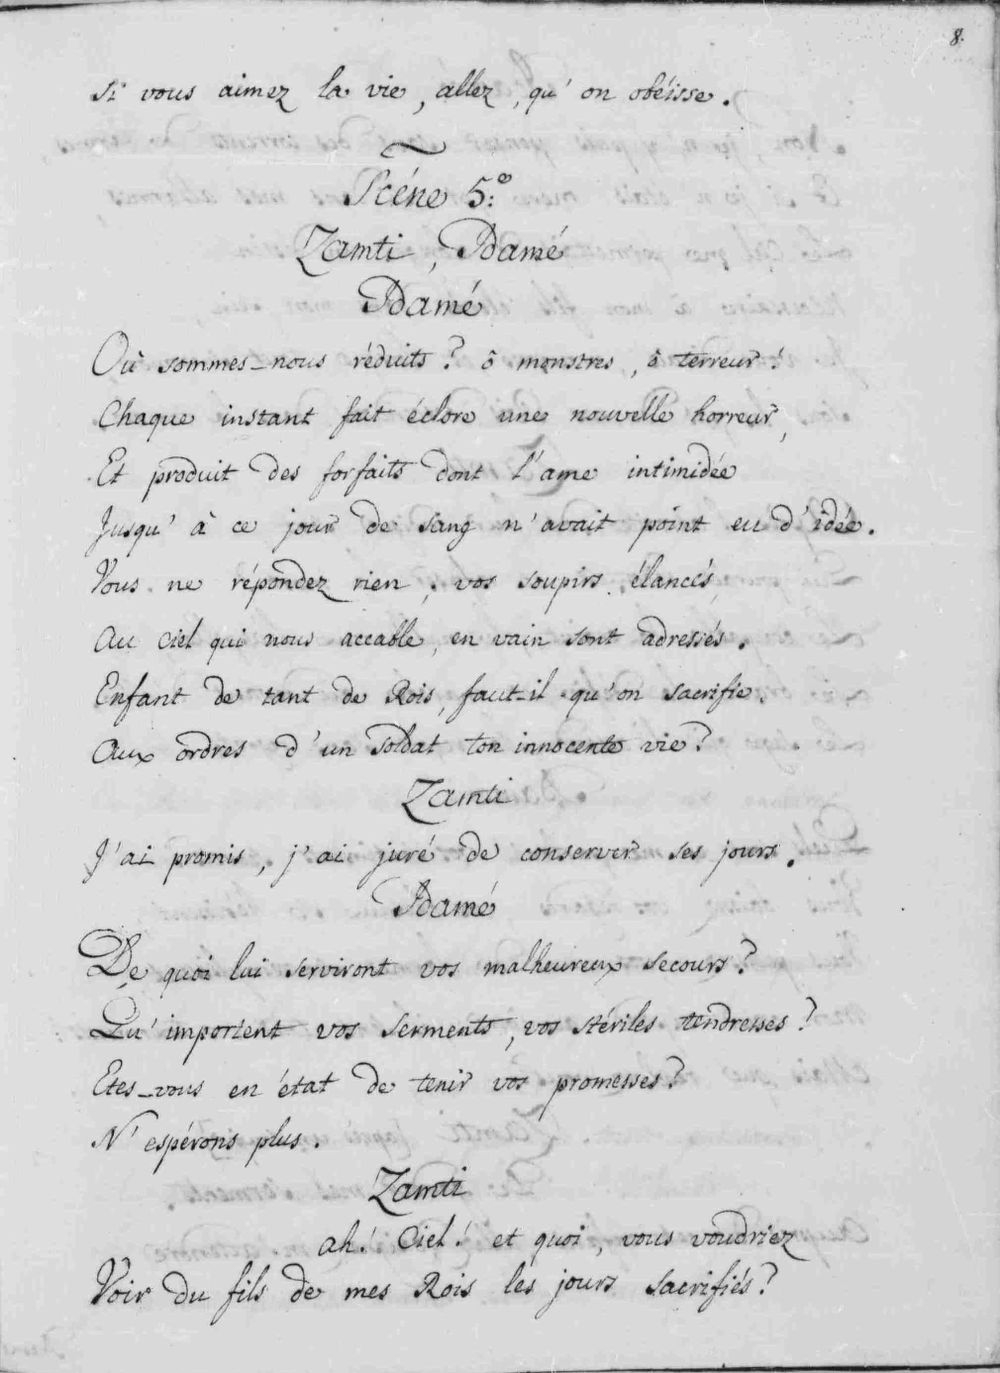 8.
si vous aimez la vie, allez, qu'on obéisse.
Scéne 5.e
Zamti, Idamé
Idamé
Où sommes-nous réduits? ô monstres, ô terreur!
Chaque instant fait éclore une nouvelle horreur,
Et produit des forfaits dont l'ame intimidée
Jusqu'à ce jour de sang n'avait point eu d'idée.
Vous ne répondez rien; vos soupirs élancés
Au Ciel qui nous accable, en vain sont adressés.
Enfant de tant de Rois, faut-il qu'on sacrifie
Aux ordres d'un soldat ton innocente vie?
Zamti
J'ai promis, j'ai juré de conserver ses jours.
Idamé
De quoi lui serviront vos malheureux secours?
Qu'importent vos serments, vos stériles tendresses?
Etes-vous en état de tenir vos promesses?
N'espérons plus.
Zamti
ah! Ciel! et quoi, vous voudriez
Voir du fils de mes Rois les jours sacrifiés?